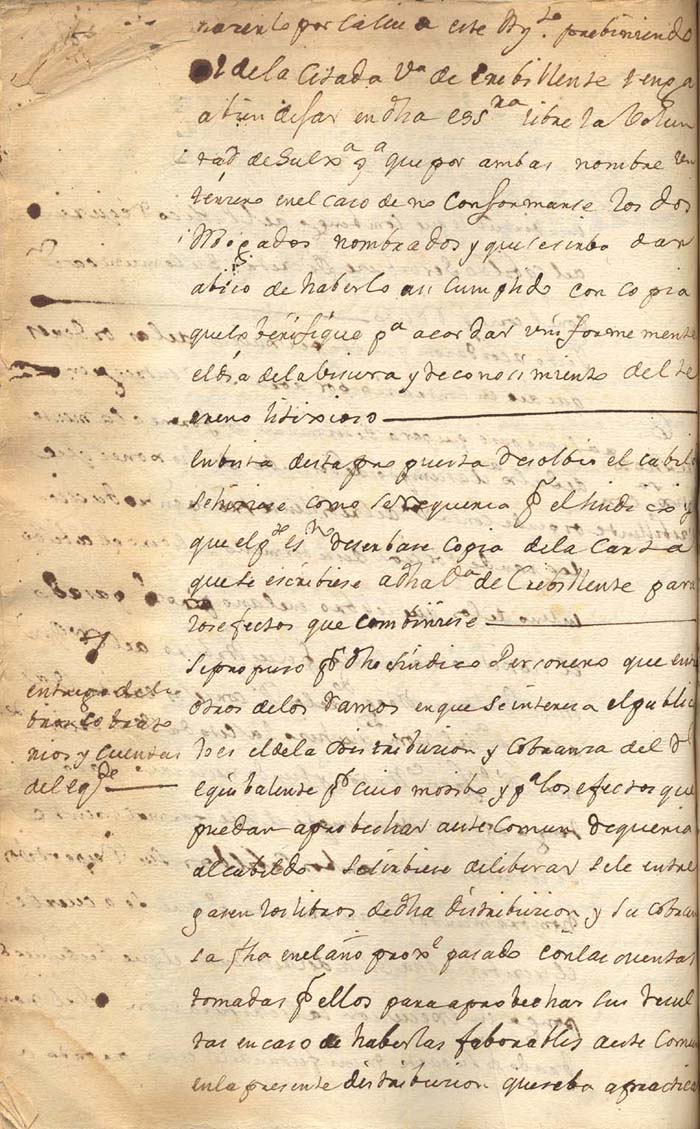 por este Ay.to prebiniendo
de la Citada V.a de Crebillente tenga
a bien dejar en dha ess.ra libre la bolun
tad de p.a que por ambas nombre un
terzero en el caso de no Conformarse los dos
Abogados nombrados y que se sirba dar
abiso de haberlo asi Cumplido con Copia
que lo berifique p.a acordar uniformemente
el dia de la bisura y reconocimiento del te
rreno litixioso
En bista desta propuesta resolbio el cabildo
se hiziese como se requeria p.r el sindico y
que el p.te es.no reserbase Copia de la Carta
que se escribiese a dha V.a de Crebillente para
los efectos que combiniese
Se propuso p.r dho Síndico Personero que
otros de los ramos en que se interesa el public
o es el de la distribuzion y cobranza del r.l
equibalente p.r cuio motibo y p.a los efectos que
puedan aprobechar a este Comun requeria
al cabildo se sirbiese deliberar se le entre
gasen los libros de dha distribuzion y su cobran
sa fha en el año prox.o pasado con las cuentas
tomadas p.r ellos para aprobechar sus resul
tas en caso de haberlas faborables a este Comun
en la presente distribuzion que se ba a practica
entrego de li
bros cobrato
rios y cuentas
del eq.te